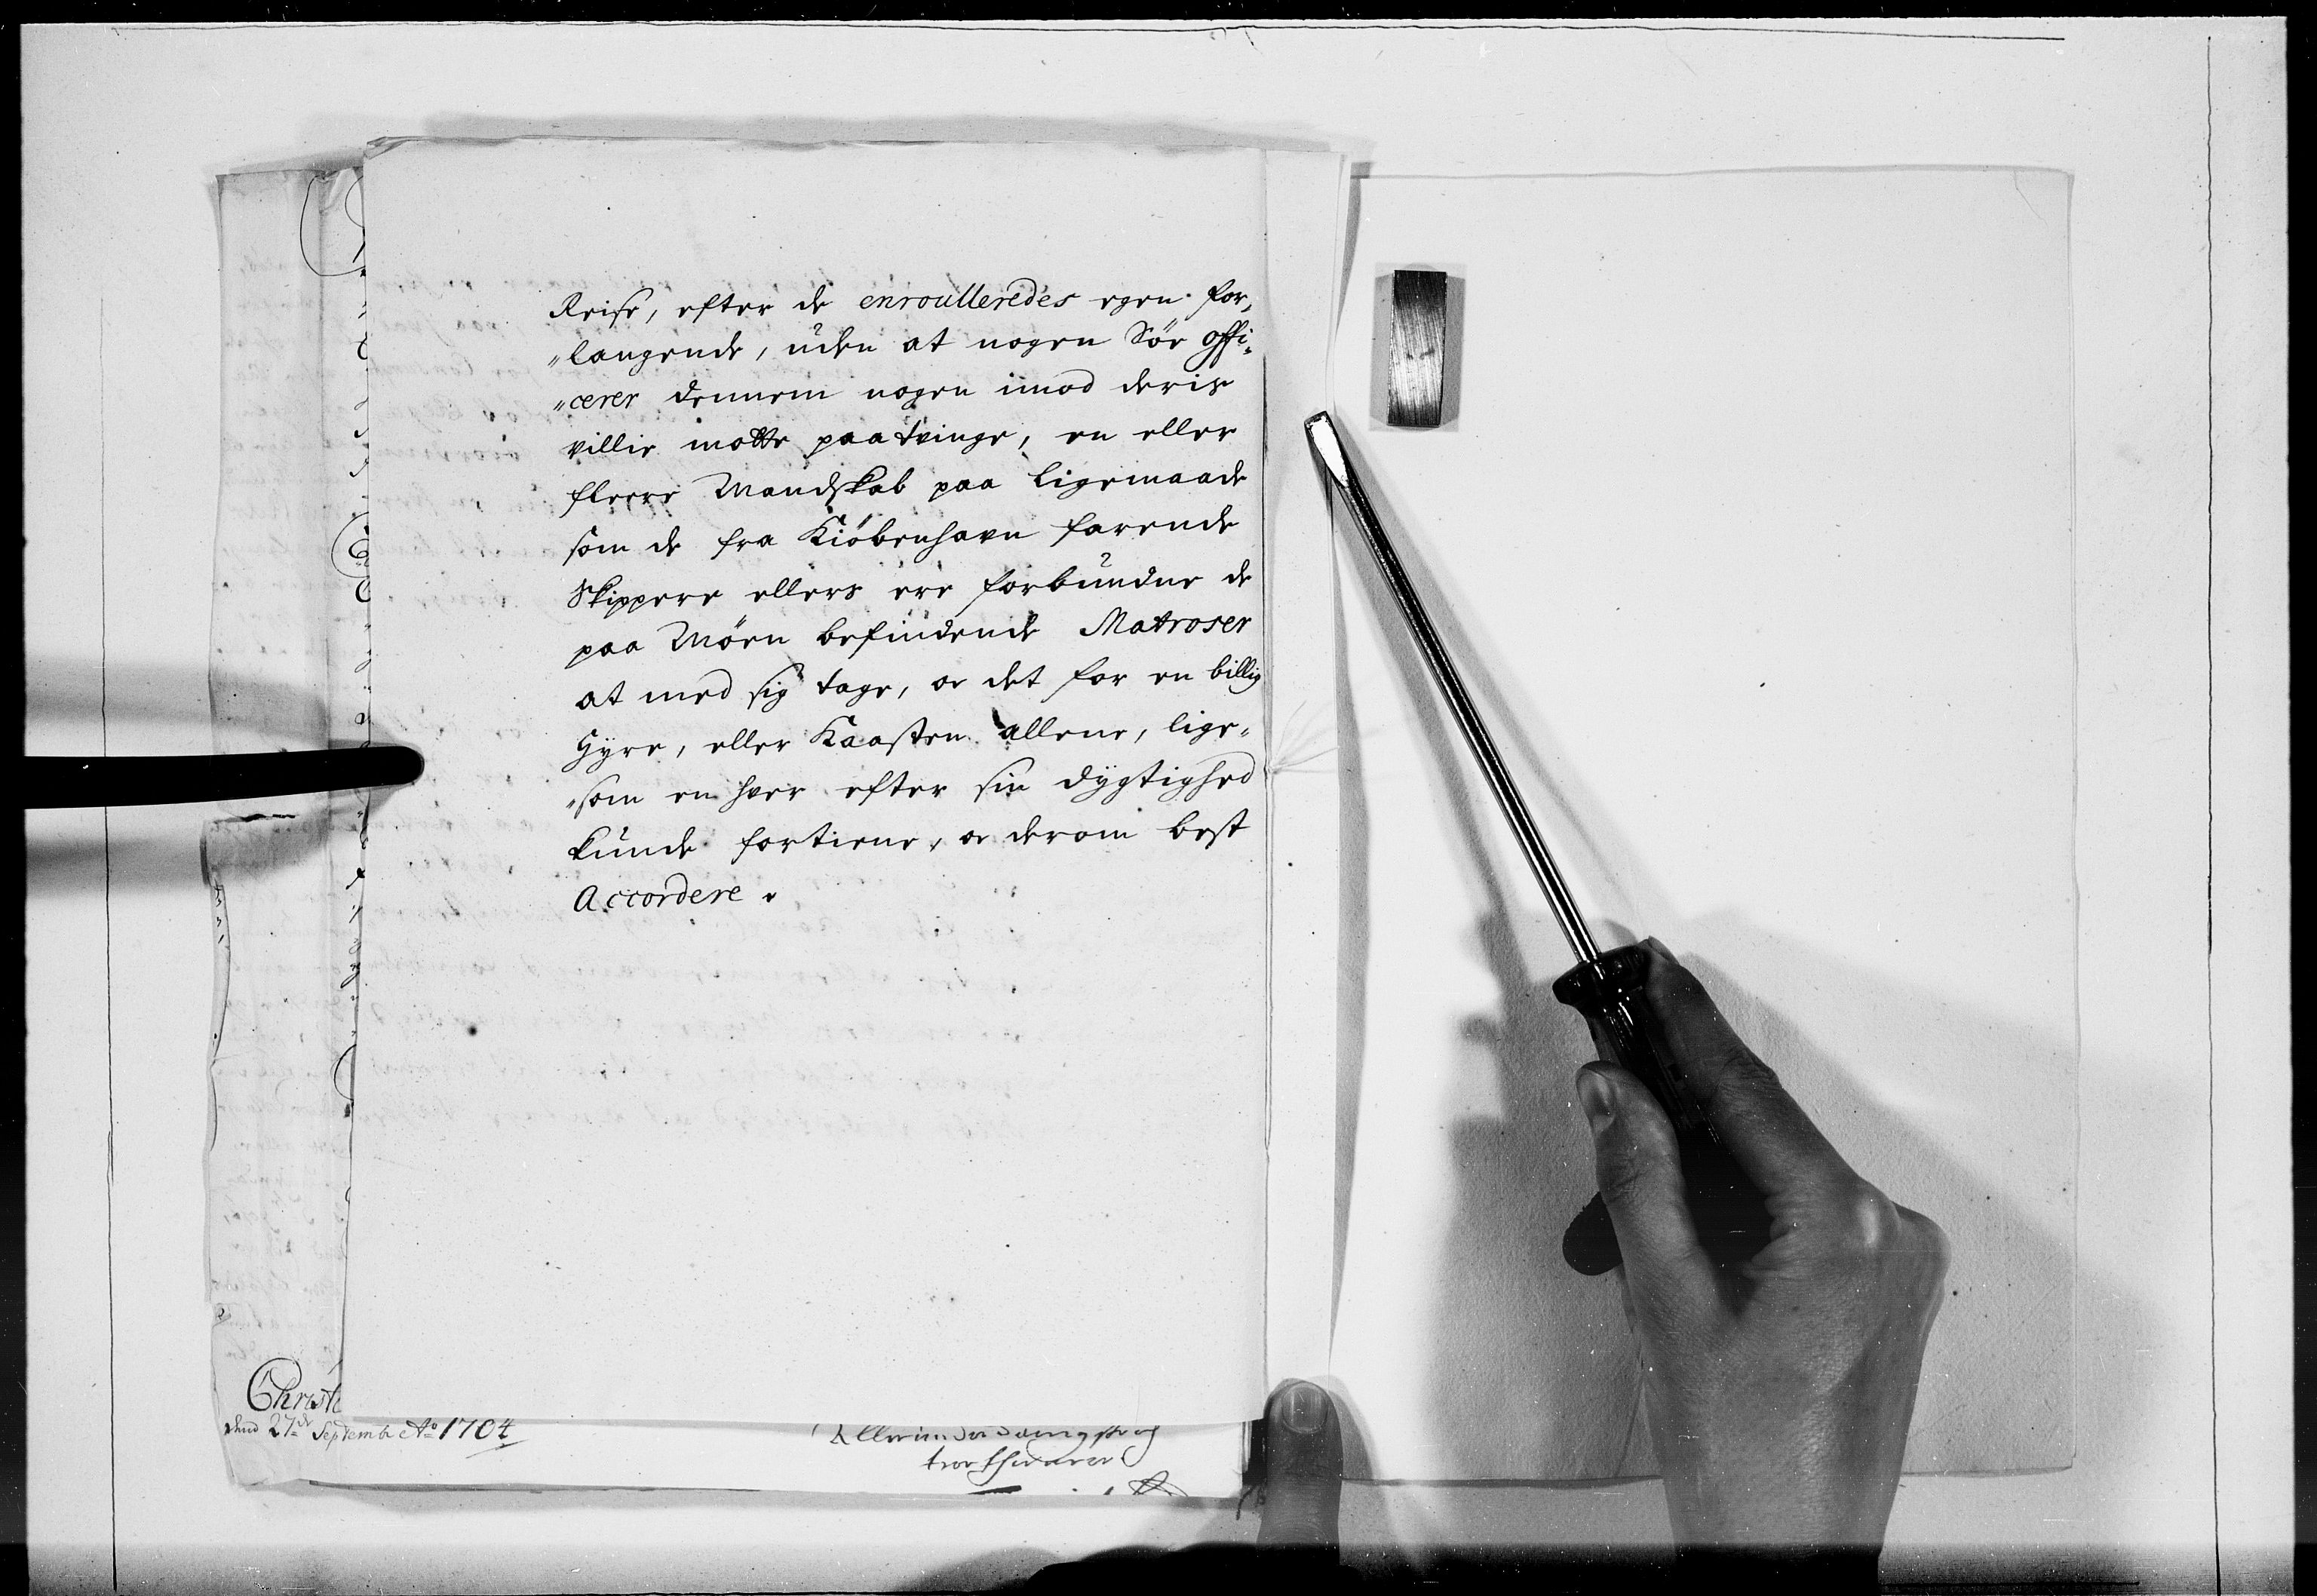 Reise, efter de enroulleredes egen for„
„langende, uden at nogen Söe Offi„
„cerer dennem nogen imod deris
villie motte paatvinge, en eller
fleere Mandskab paa ligemaade
som de fra Kiöbenhavn farende
Skippere ellers ere forbundne de
paa Möen befindende Matroser
at med sig tage, oc det for en billig
Hÿre, eller Kaasten allene, lige„
„som en hver efter sin dÿgtighed
kunde fortiene, oc derom best
Accordere.
Christ
dend 27de Septembr Ao 1704
Allerunderdanigste og
troe